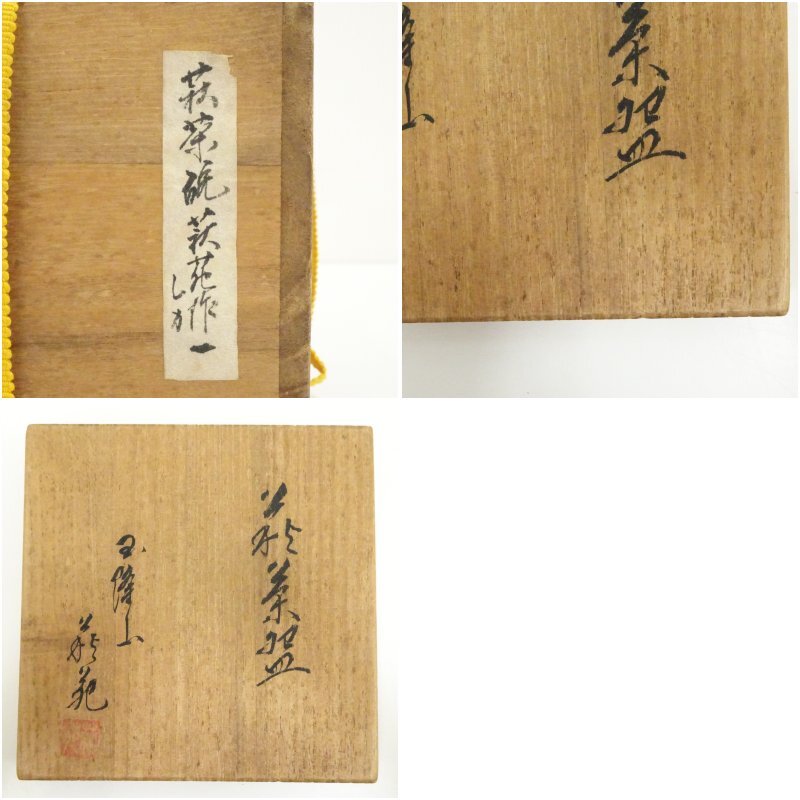 萩茶碗萩苑作一
茶盌
萩茶盌
玉隆山
萩苑